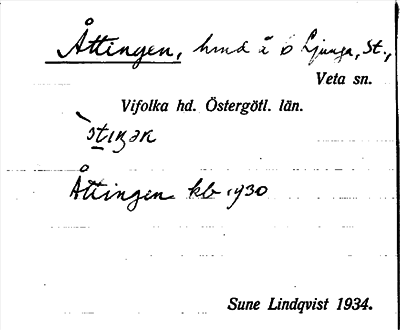 Åttingen, hmd å ö Ljunga, St.,
Veta sn.
Vifolka hd. Östergötl. län.
Åttingen kb 1930
Sune Lindqvist 1934.